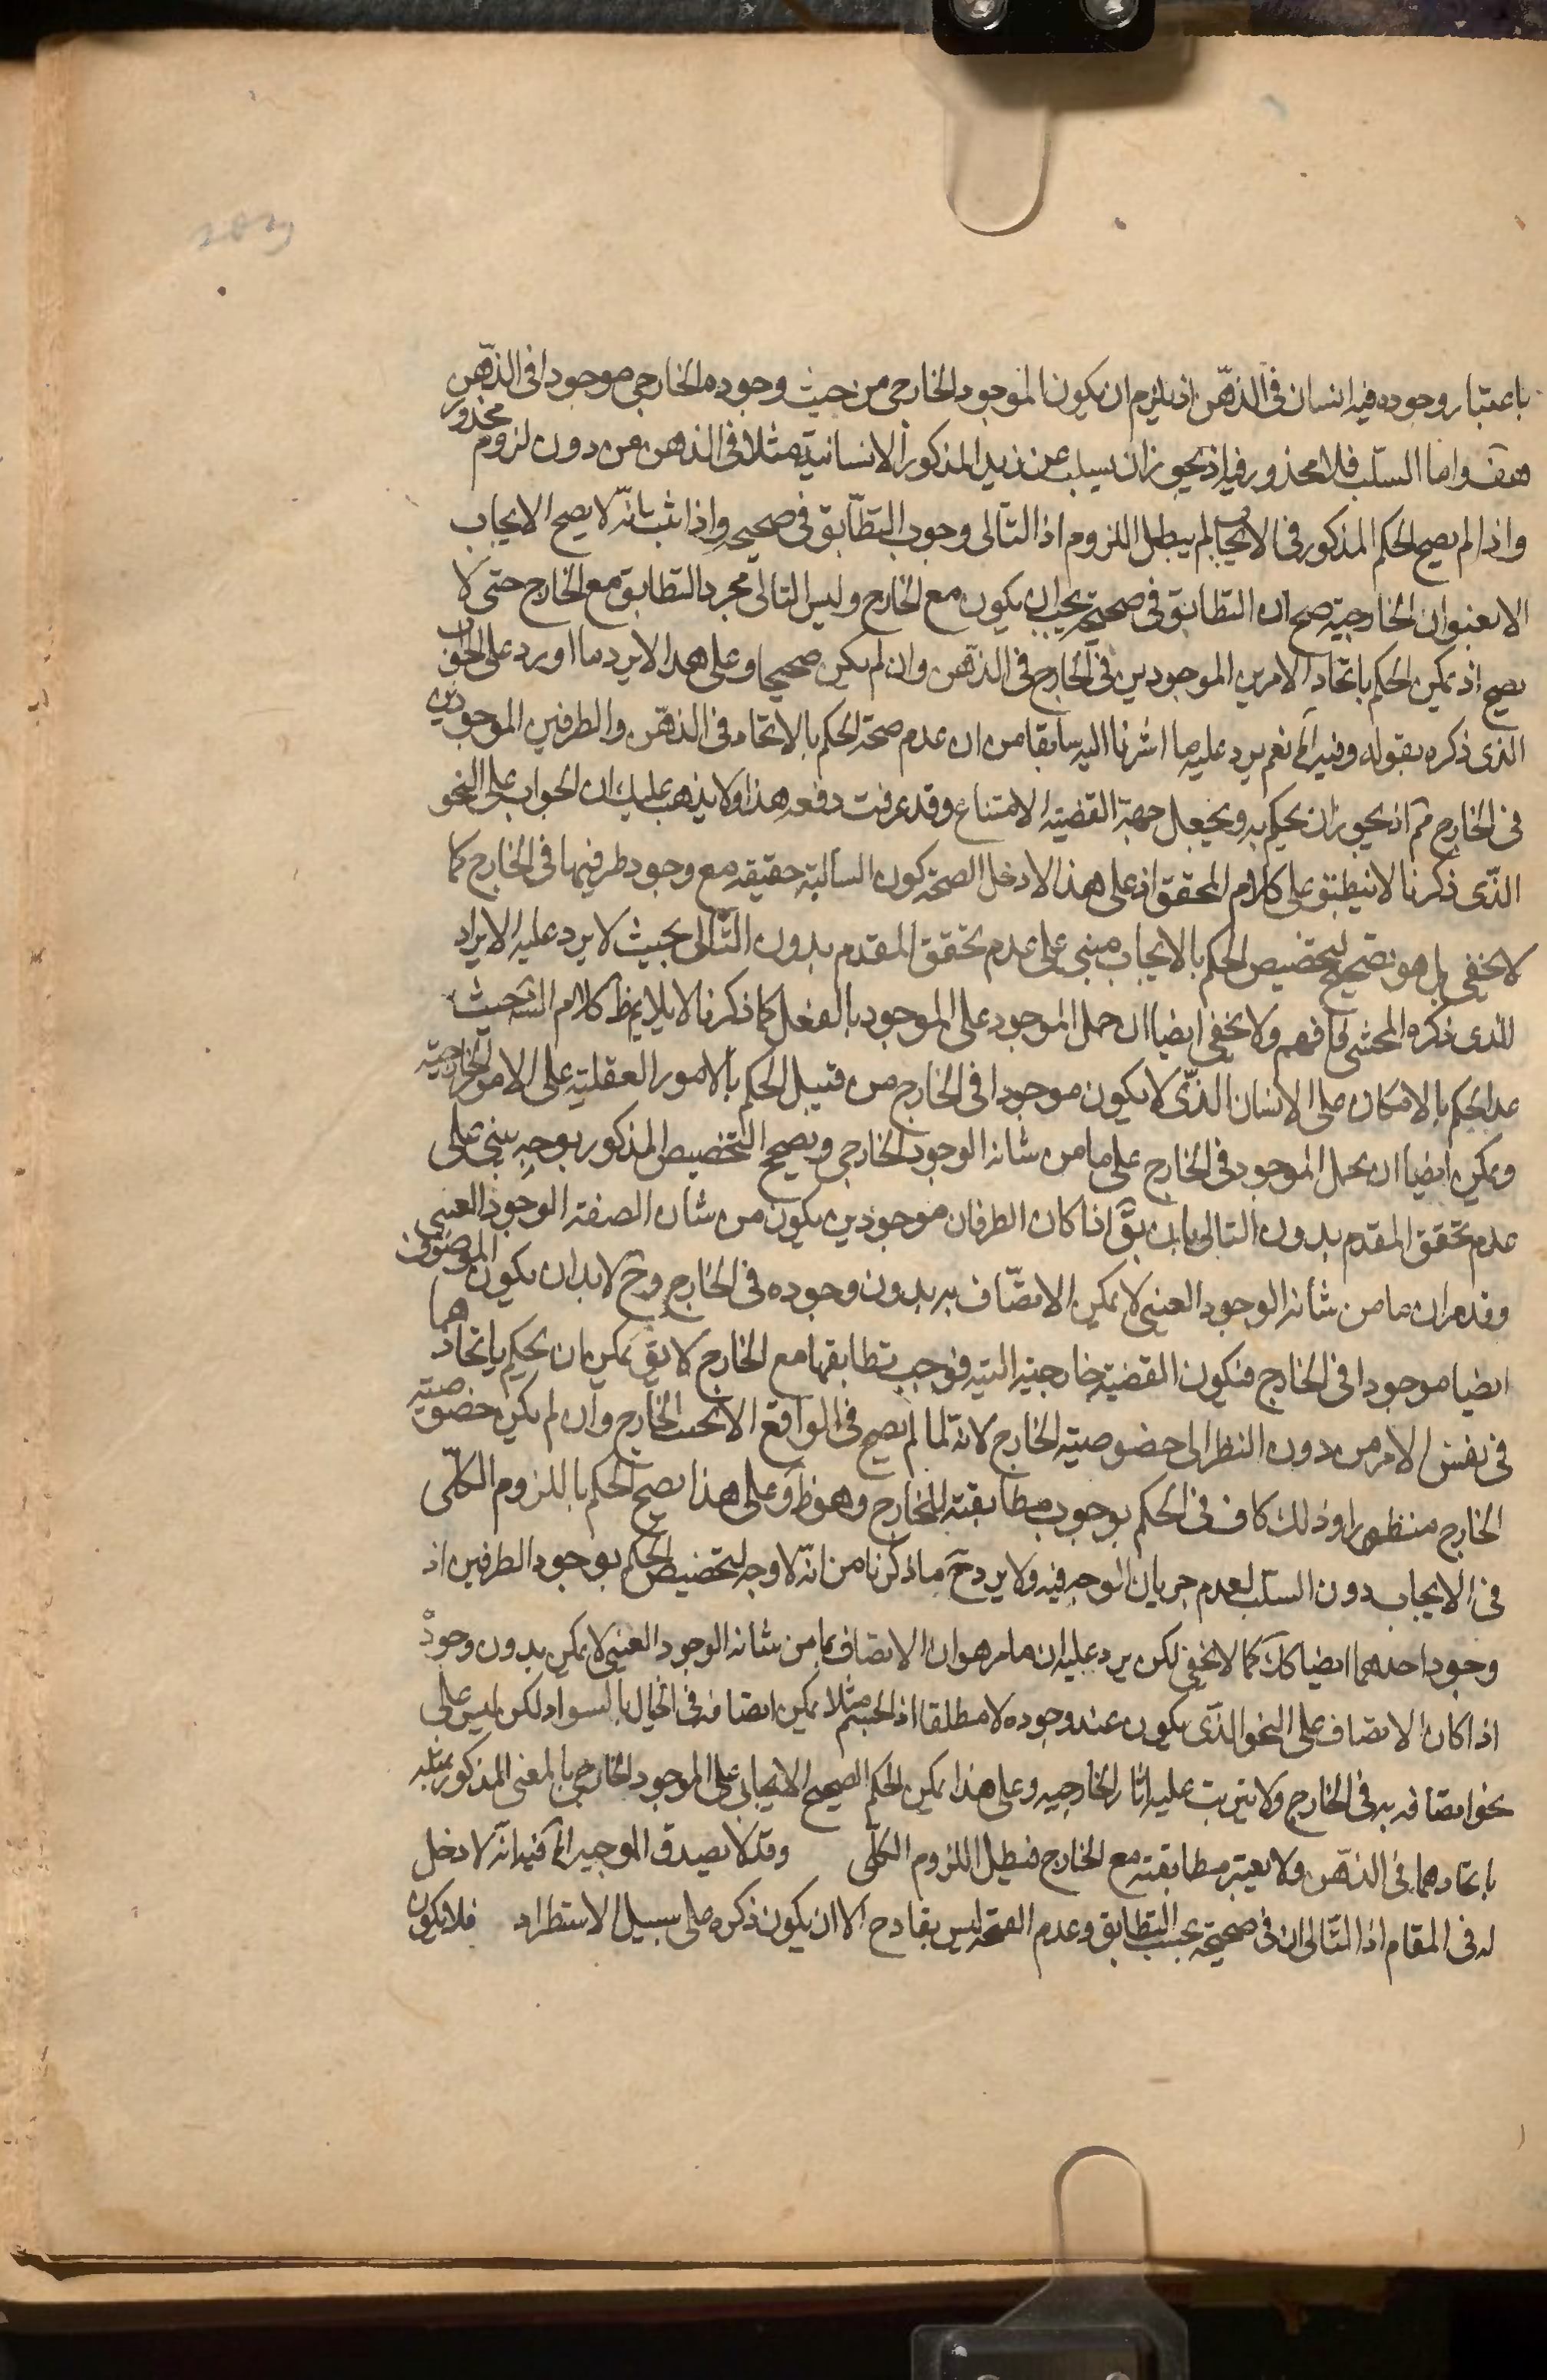 باعتبار وجوده فيه انسان فى الذهن اذ يلزم ان يكون الموجود الخارجى من حيث وجوده الخارجى موجودا فى الذهن
هف واما السلب فلا محذور فيه اذ يجوز ان يسلب عن زيد المذكور الانسانية مثلا فى الذهن من دون لزوم محذور
واذا لم يصح الحكم المذكور فى الايجاب لم يبطل اللزوم اذ التالى وجوب التطابق فى صحيحه واذا ثبت انه لا يصح الايجاب
الا بعنوان الخارجية صح ان التطابق فى صحيحه يجب ان يكون مع الخارج وليس التالى مجرد التطابق مع الخارج حتى لا
يصح اذ يمكن الحكم باتحاد الامرين الموجودين فى الخارج فى الذهن وان لم يكن صحيحا وعلى هذا لا يرد ما اورد على الجواب
الذى ذكره بقوله وفيه الخ نعم يرد عليه ما اشرنا اليه سابقا من ان عدم صحة الحكم بالاتحاد فى الذهن والطرفين الموجودين
فى الخارج مم اذ يجوز ان يحكم به ويجعل جهة القضية الامتناع وقد عرفت دفعه هذا ولا يذهب عليك ان الجواب على النحو
الذى ذكرنا لا ينطبق على كلام المحقق اذ على هذا لا دخل لصحة كون السالبة حقيقه مع وجود طرفيها فى الخارج كما
لا يخفى بل هو تصحيح لتخصيص الحكم بالايجاب مبنى على عدم تحقق المقدم بدون التالى بحيث لا يرد عليه الايراد
الذى ذكره المحشى فافهم ولا يخفى ايضا ان حمل الموجود على الموجود بالفعل كما ذكرنا لا يلايم ظ كلام الش حيث
عد الحكم بالامكان على الانسان الذى لا يكون موجودا فى الخارج من قبيل الحكم بالامور العقلية على الامور الخارجية
ويمكن ايضا ان يحمل الموجود فى الخارج على ما من شانه الوجود الخارجى ويصحح التخصيص المذكور بوجه يبنى على
عدم تحقق المقدم بدون التالى بان يق اذا كان الطرفان موجودين يكون من شان الصفة الوجود العينى
وقد مر ان ما من شانه الوجود العينى لا يمكن الاتصاف به بدون وجوده فى الخارج وح لا بد ان يكون الموصوف
ايضا موجودا فى الخارج فتكون القضية خارجية البتة فوجب تطابقها مع الخارج لا يق يمكن ان يحكم باتحادهما
فى نفس الامر من دون النظر الى خصوصية الخارج لانه لما لم يصح فى الواقع الا بحسب الخارج وان لم يكن خصوصية
الخارج منظورا وذلك كاف فى الحكم بوجوب مطابقته للخارج وهو ظ وعلى هذا يصح الحكم باللزوم الكلى
فى الايجاب دون السلب لعدم جريان الوجه فيه ولا يرد ح ما ذكرنا من انه لا وجه لتخصيص الحكم بوجود الطرفين اذ
وجود احدهما ايضا كك كما لا يخفى لكن يرد عليه ان ما مر هو ان الاتصاف بما من شانه الوجود العينى لا يمكن بدون وجوده
اذا كان الاتصاف على النحو الذى يكون عند وجوده لا مطلقا اذ الجسم مثلا يمكن اتصافه فى الخيال بالسواد لكن ليس على
نحو اتصافه به فى الخارج ولا يترتب عليه اثار الخارجيه وعلى هذا يمكن الحكم الصحيح الايجابى على الموجود الخارجى بالمعنى المذكور بمثله
باتحادهما فى الذهن ولا يعتبر مطابقته مع الخارج فبطل اللزوم الكلى وقد لا يصدق الموجبه الخ فيه انه لا دخل
له فى المقام اذ التالى ان فى صحيحه يجب التطابق وعدم الصحة ليس بقادح الا ان يكون ذكره على سبيل الاستطراد فلا يكون